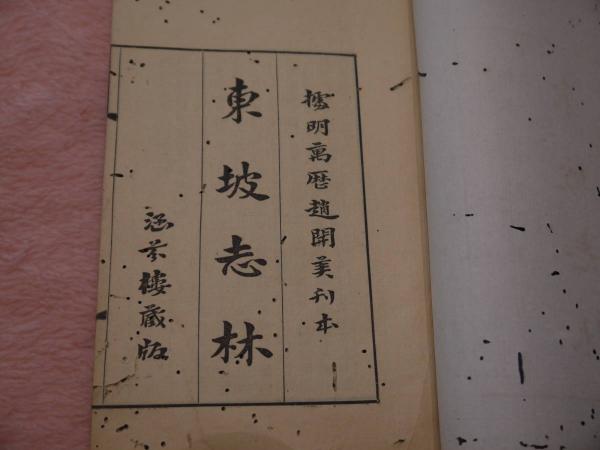 據明萬歷趙開美刊本
東坡志林
涵芬樓藏版